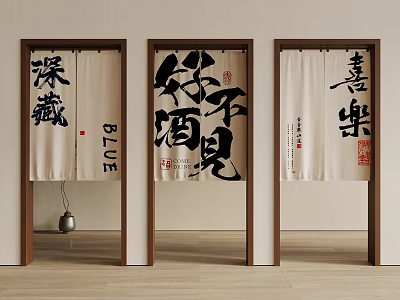 深藏
BLUE
好酒不見
COME
DRINK
喜樂